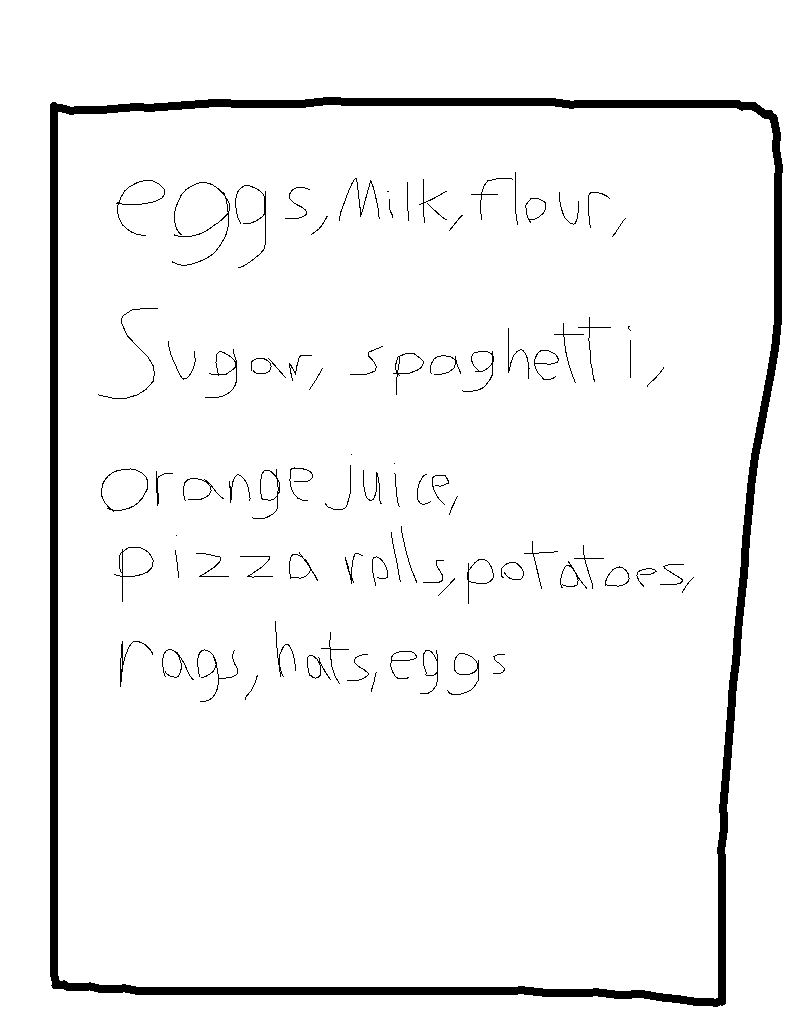 eggs, Milk, flour,
Sugar, spaghetti,
orange juice,
pizza rolls, potatoes,
rags, hats, eggs